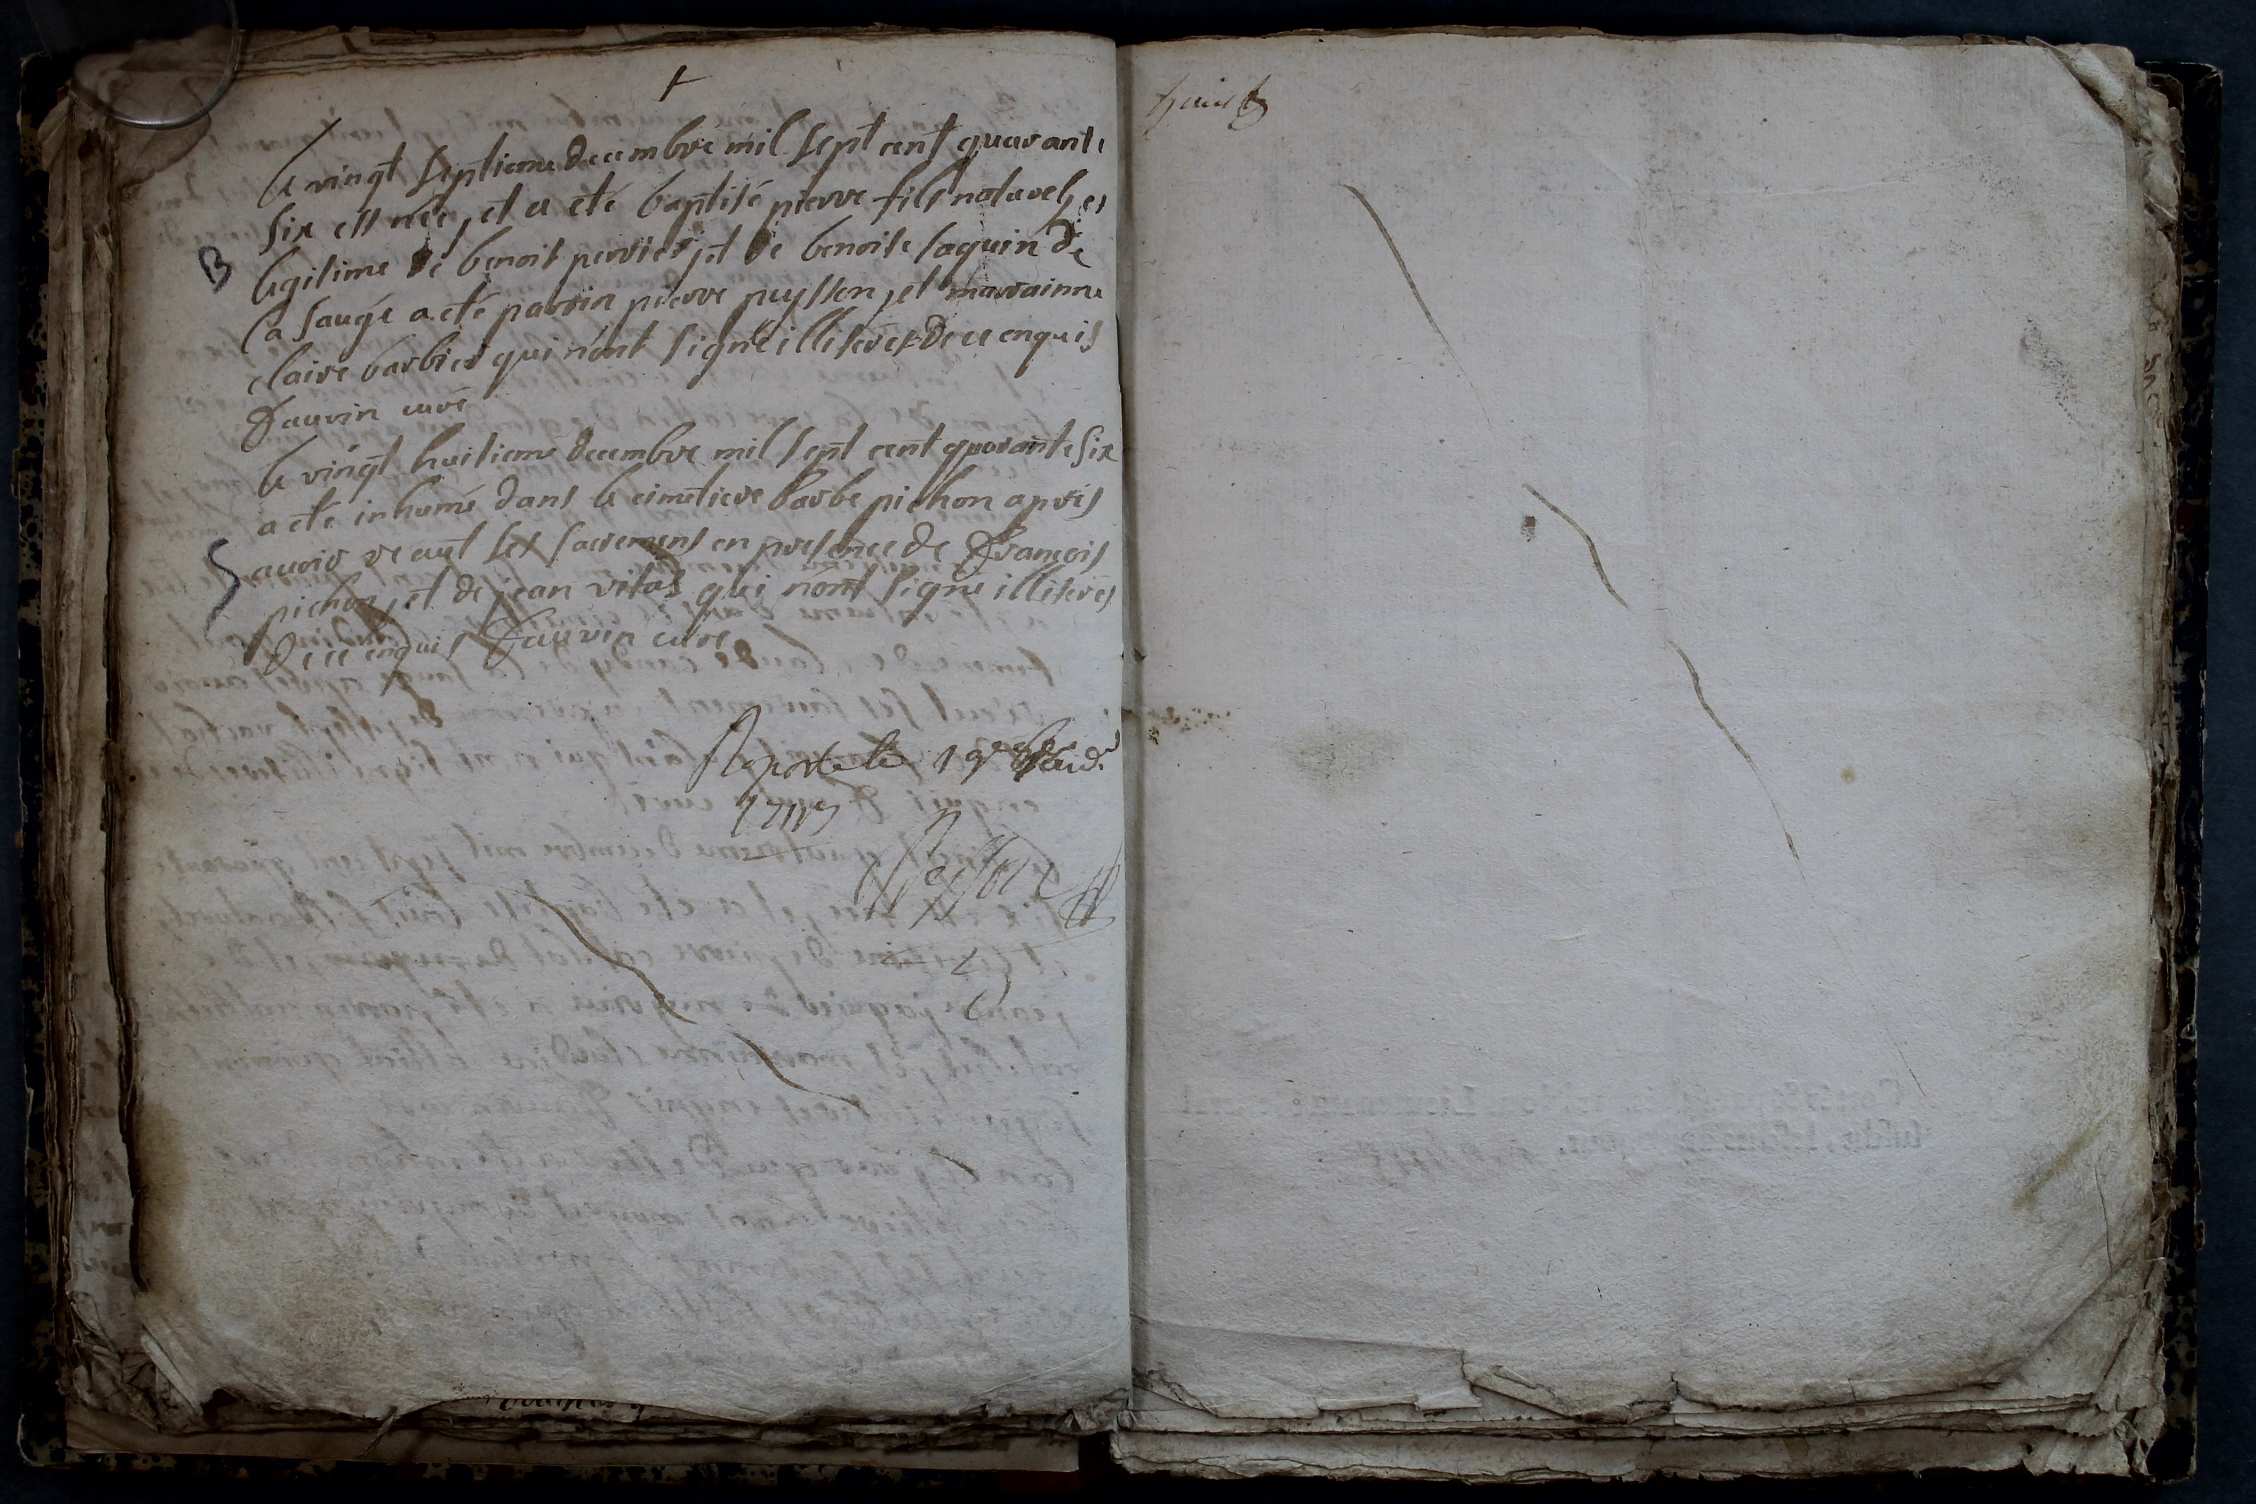 le vingt septieme decembre mil sept cent quarante
six est née, et a eté baptisé pierre fils naturel, et
legitime de benoit perrier, et de benoite saquin de
la sauge a eté parrin pierre peysson, et marrainne
claire barbier qui n'ont signé illiterés de ce enquis
Fauvin curé
B
le vingt huitieme decembre mil sept cent quarante six
a eté inhumé dans le cimetiere barbe pichon aprés
avoir receut ses sacrements en presence de François
pichon, et de jean vital qui nont signé illiterés
de ce enquis Fauvin curé
S
Raporté le
huit